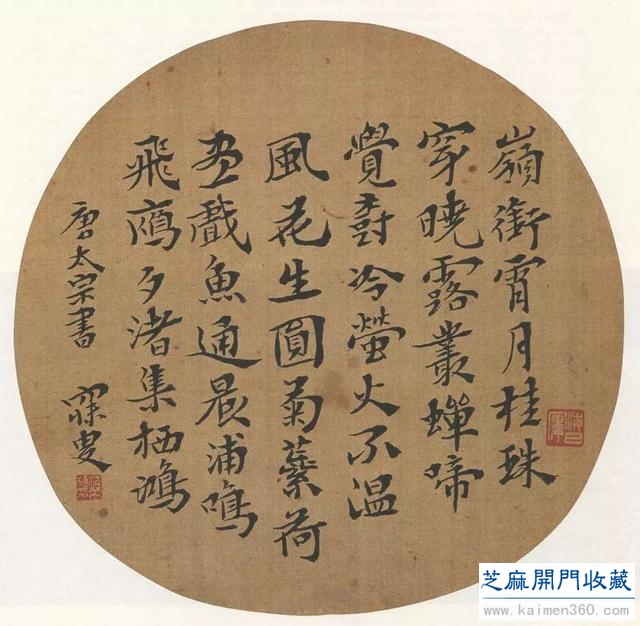 嶺銜宵月桂珠
穿曉露叢蟬啼
覺尌冷螢火不溫
風花生圓菊蘂荷
盡戲魚通晨浦鳴
飛鴈夕渚集栖鴻
唐太宗書 寐叟
芝麻開門收藏
www.kaimen360.com